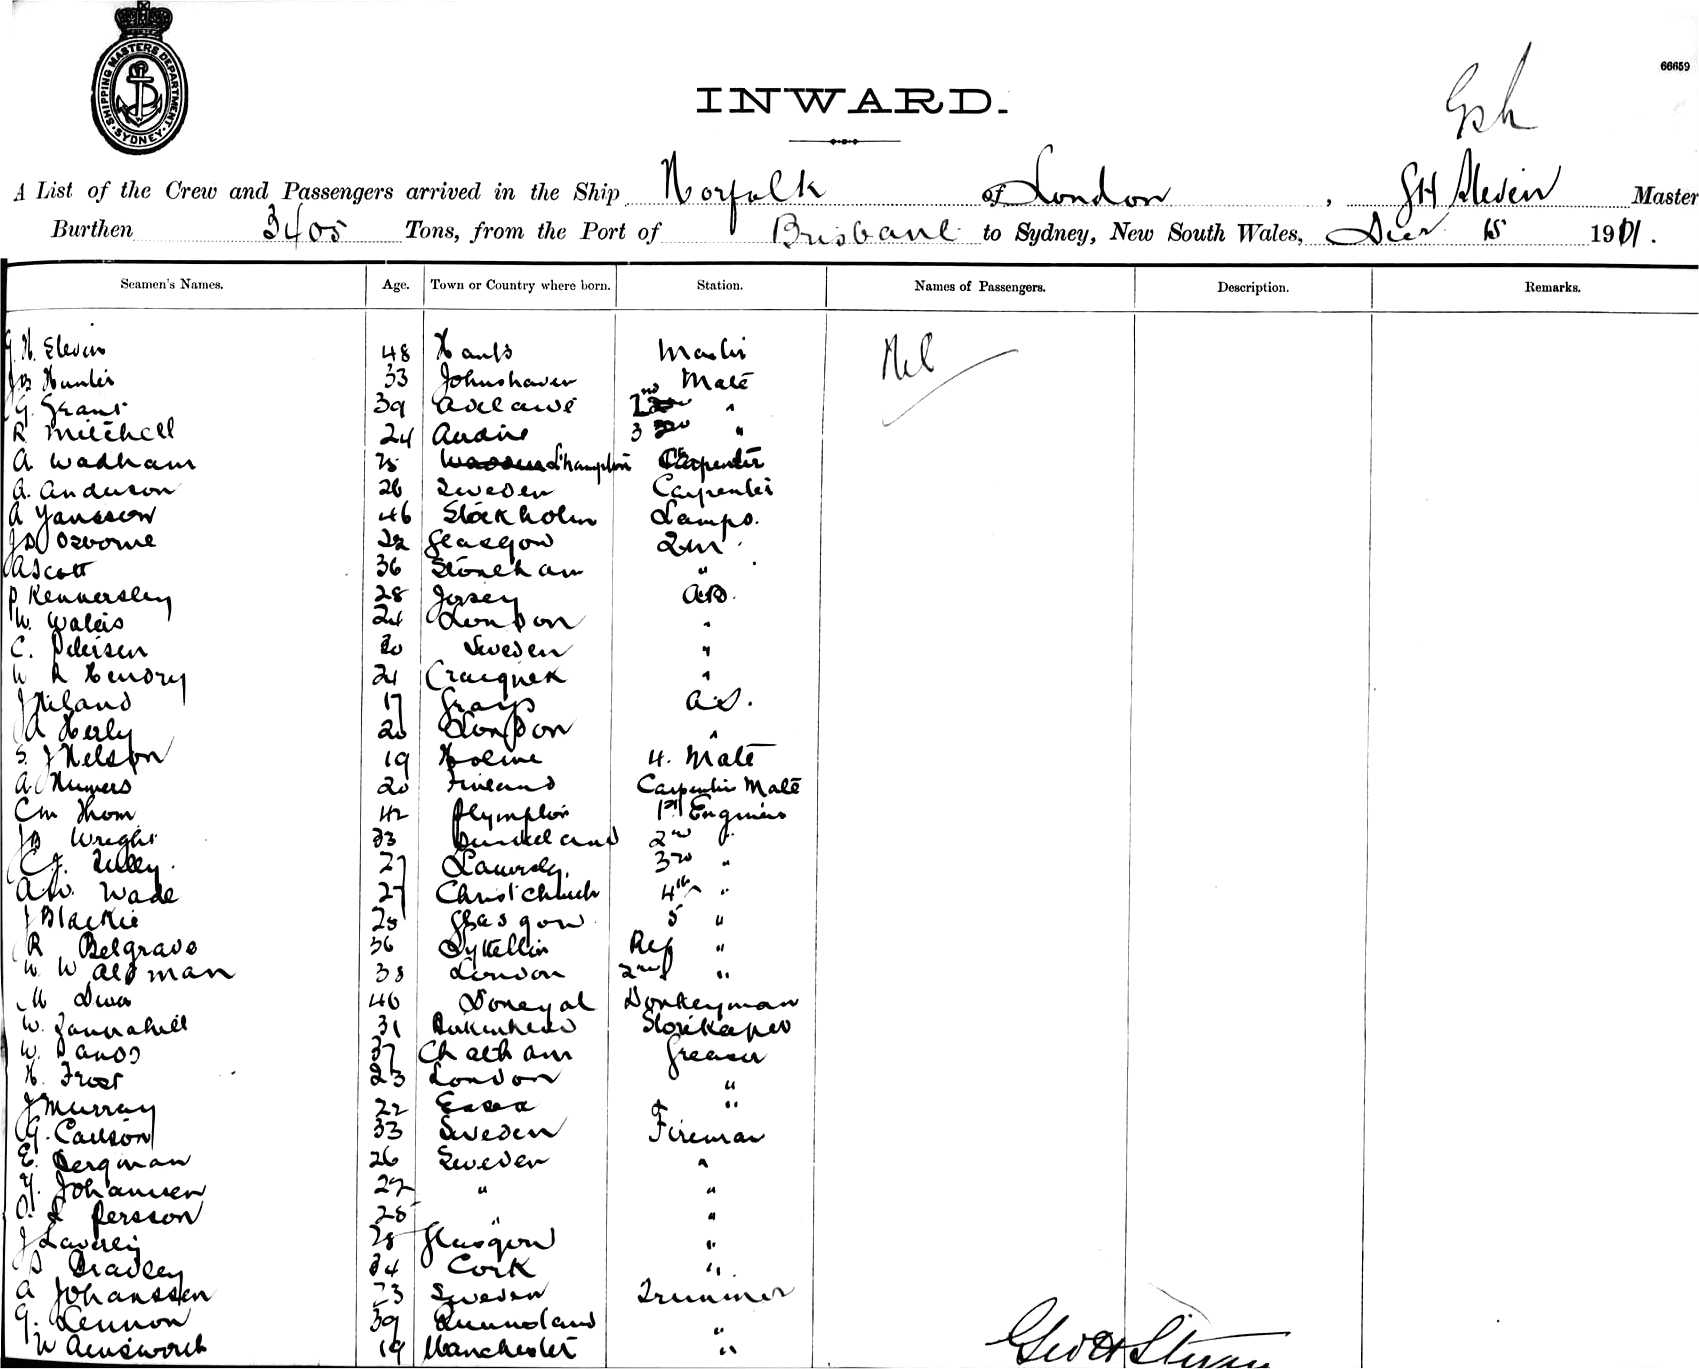 SHIPPING MASTERS DEPARTMENT
SYDNEY
66659
INWARD.
A List of the Crew and Passengers arrived in the Ship Norfolk of London, GH Steven Master
Burthen 3405 Tons, from the Port of Brisbane to Sydney, New South Wales, Decr 15 1901.
Seamen's Names. Age. Town or Country where born. Station. Names of Passengers. Description. Remarks.
G. H. Steven 48 Hants Master Nil
JB Hunter 33 Johnshaven Mate
G. Grant 39 Adelaide 2nd "
R Mitchell 24 3 "
A Wadham 25 S'hampton Carpenter
A. Anderson 26 Sweden Carpenter
A Jansson 46 Stockholm Lamps.
J Osborne 22 Glasgow QM
A Scott 36 Stoneham "
P Kennersley 28 Jersey AB.
W. Waters 24 London "
C. Petersen 20 Sweden "
W R Hendry 21 "
J Niland 17 Grays O.S.
A Herly 20 London "
S. J Nelson 19 4. Mate
A 20 Finland Carpenters Mate
CM Thom 42 Plympton 1st Engineer
JB Wright 33 Sunderland 2nd "
C J. Tulley. 27 3rd "
A W. Wade 27 Christchurch 4th "
J Blackie 25 Glasgow 5 "
R Belgrave 36 Lyttelton Ref "
W Waldman 38 London 2nd "
M 40 Donegal Donkeyman
W. Tannahill 31 Birkenhead Storekeeper
W. Sands 37 Chatham Greaser
H. Frost 23 London "
J Murray 22 Essex "
G. Carlson 33 Sweden Fireman
E. Bergman 26 Sweden "
Y. Johannsen 22 " "
O. L Persson 28 " "
J Laverty 28 Glasgow "
D Bradley 34 Cork "
A Johanssen 23 Sweden Trimmer
G. Lennon 39 Queensland "
W Ainsworth 19 Manchester "
Geo H Steven